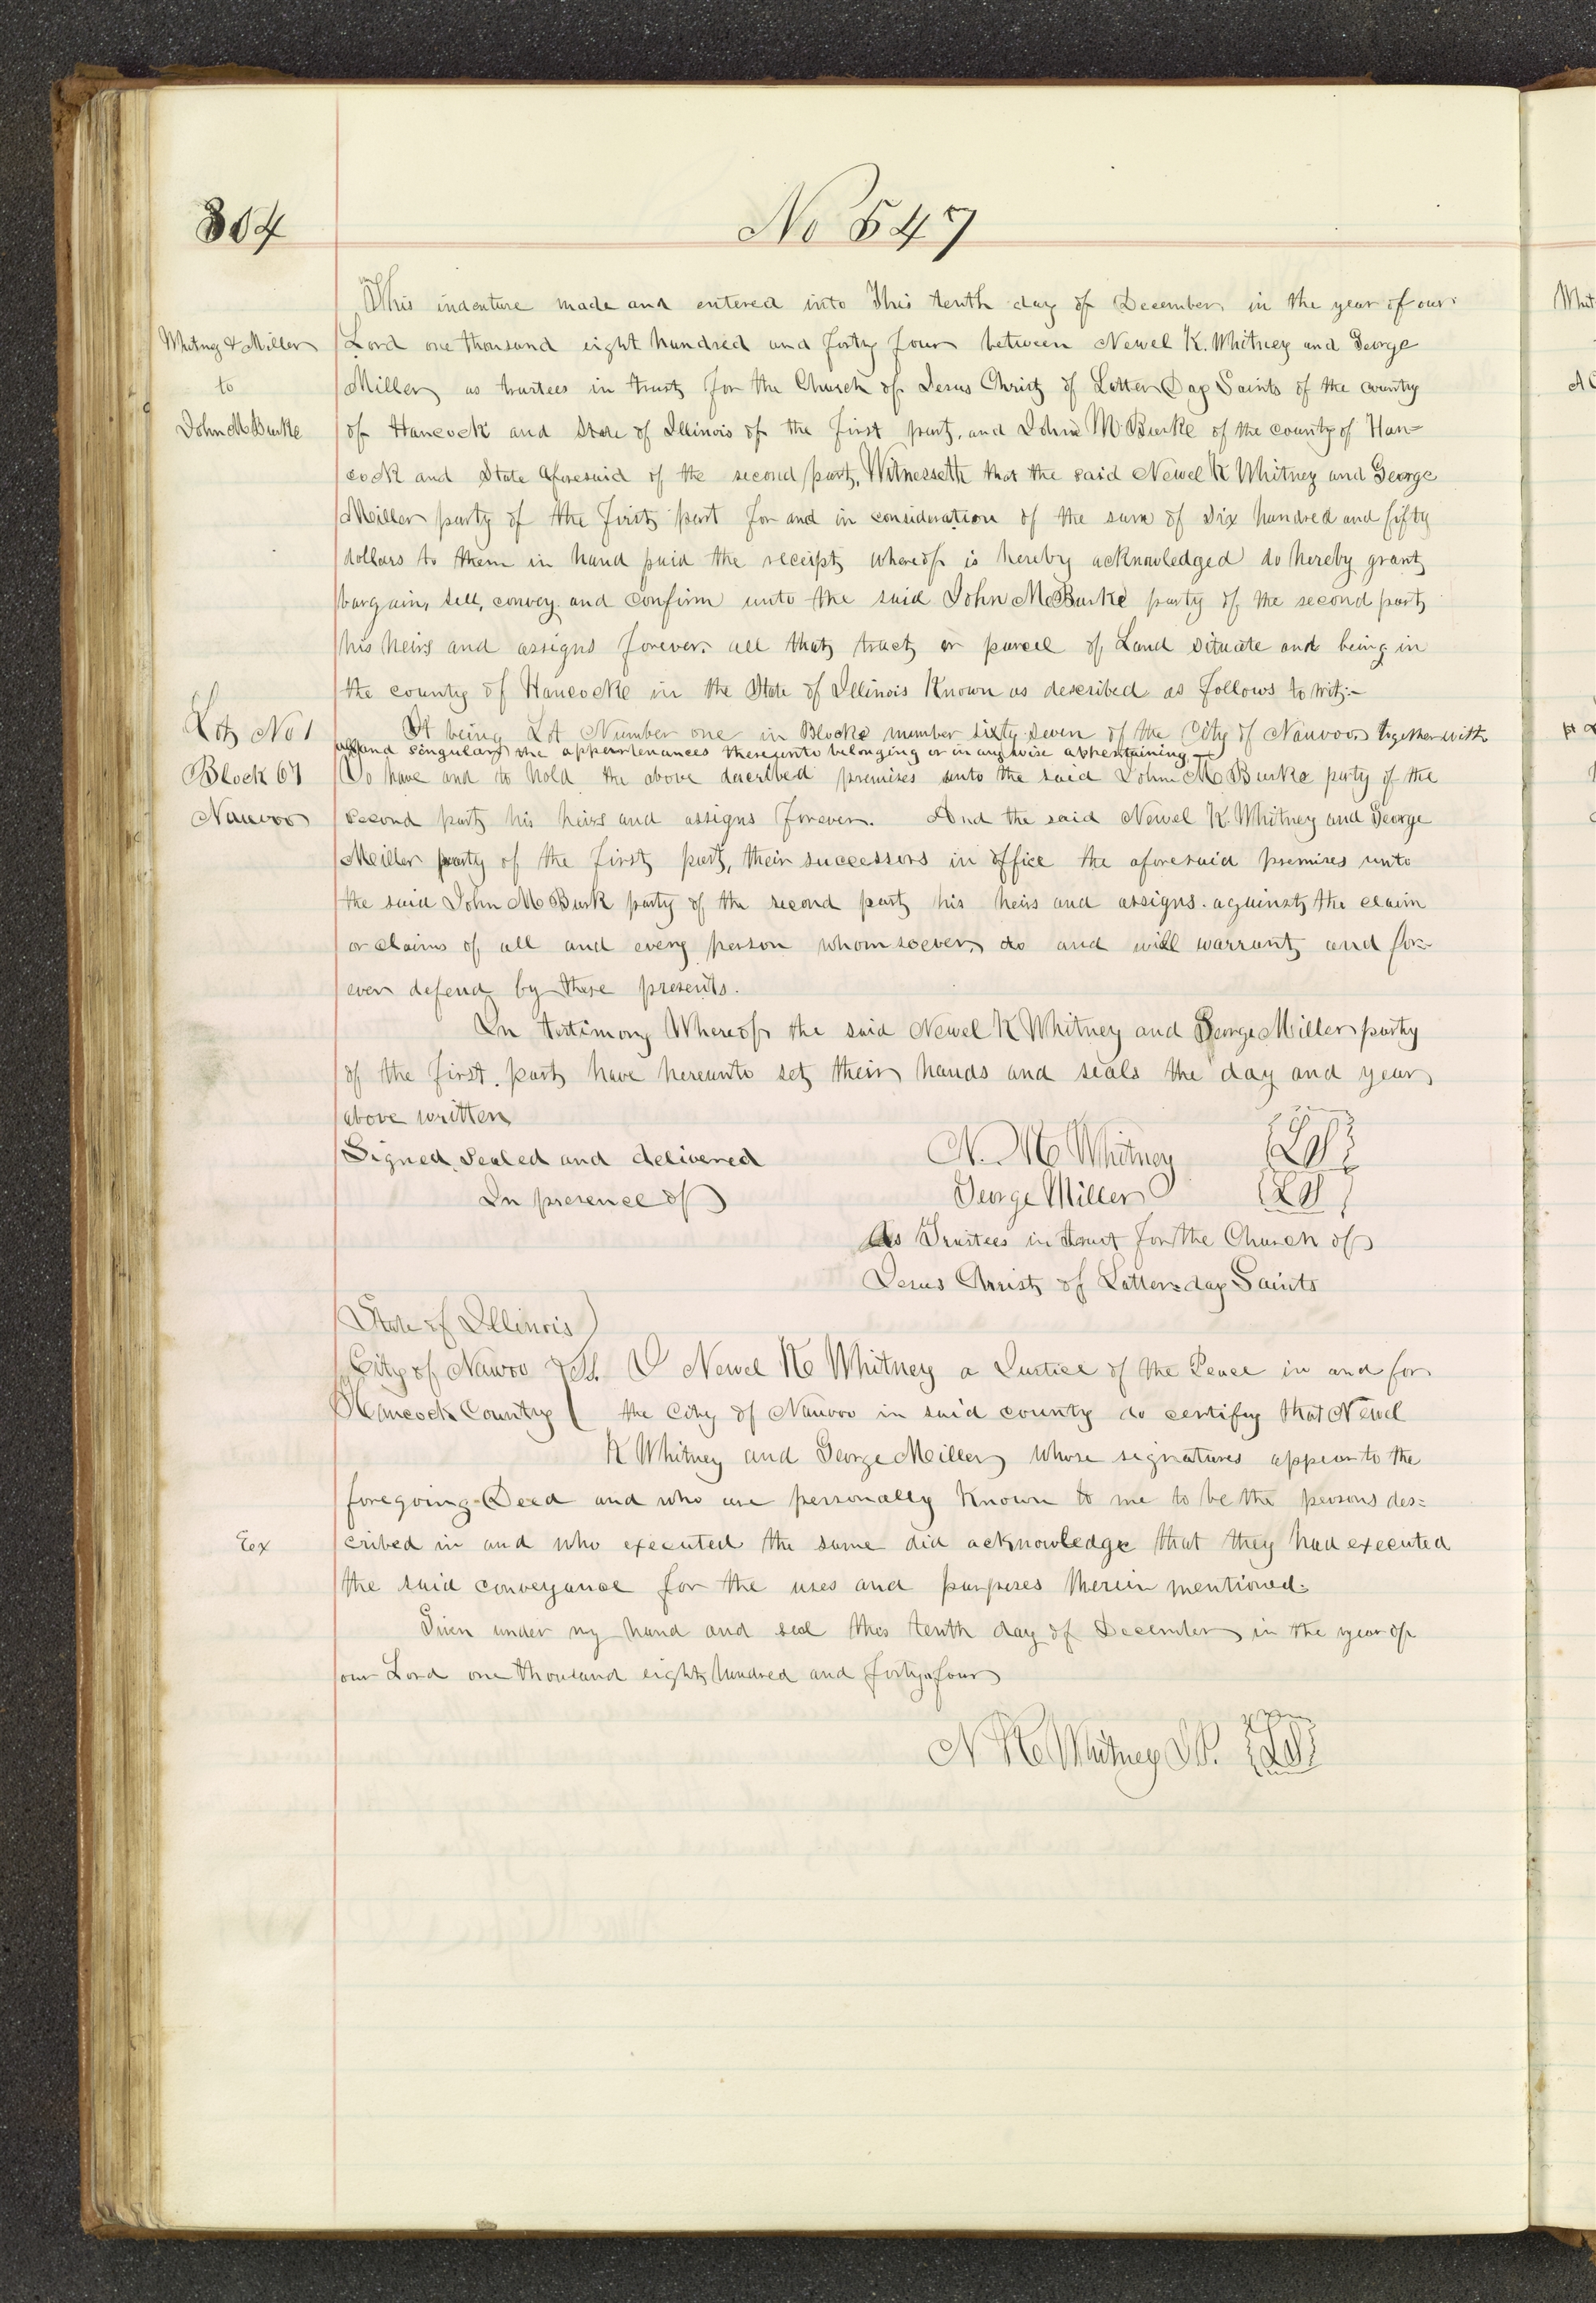 304
No 547
This indenture made and entered into This tenth day of December in the year of our
Whitney & Miller
to
John M Burke
Lord one thousand eight hundred and forty four between Newel K. Whitney and George
Miller as trustees in trust for the Church of Jesus Christ of Latter Day Saints of the county
of Hancock and State of Illinois of the first part, and John M Burke of the county of Han=
cock and State aforesaid of the second part, Witnesseth that the said Newel K Whitney and George
Miller party of the first part for and in consideration of the sum of Six hundred and fifty
dollars to them in hand paid the receipt whereof is hereby acknowledged do hereby grant
bargain, sell, convey and confirm unto the said John M Burke party of the second part
his heirs and assigns forever. all that tract or parcel of Land situate and being in
the county of Hancocke in the State of Illinois Known as described as follows to wit:-
Lot No 1
Block 67
Nauvoo
It being Lot Number one in Blocke number sixty seven of the City of Nauvoo together with
all and singular the appurtenances thereunto belonging or in any wise appertaining
To have and to hold the above described premises unto the said John M Burke party of the
second part his heirs and assigns forever. And the said Newel K Whitney and George
Miller party of the first part, their successors in office the aforesaid premises unto
the said John M Burk party of the second part his heirs and assigns. against the claim
or claims of all and every person whomsoever, do and will warrant and for-
ever defend by these presents.
In testimony Whereof the said Newel K Whitney and George Miller party
of the first part have hereunto set their hands and seals the day and year
above written
Signed Sealed and delivered
In presence of
N. K Whitney {LS}
George Miller {LS}
As Trustees in trust for the Church of
Jesus Christ of Latter=day Saints
State of Illinois
City of Nauvoo
Hancock County
} SS. I Newel K Whitney a Justice of the Peace in and for
the City of Nauvoo in said county do certify that Newel
K Whitney and George Miller whose signatures appear to the
foregoing Deed and who are personally Known to me to be the persons des=
Eex
cribed in and who executed the same did acknowledge that they had executed
the said conveyance for the uses and purposes therein mentioned.
Given under my hand and seal this tenth day of December in the year of
our Lord one thousand eight hundred and forty-four
N K Whitney J P. {LS}